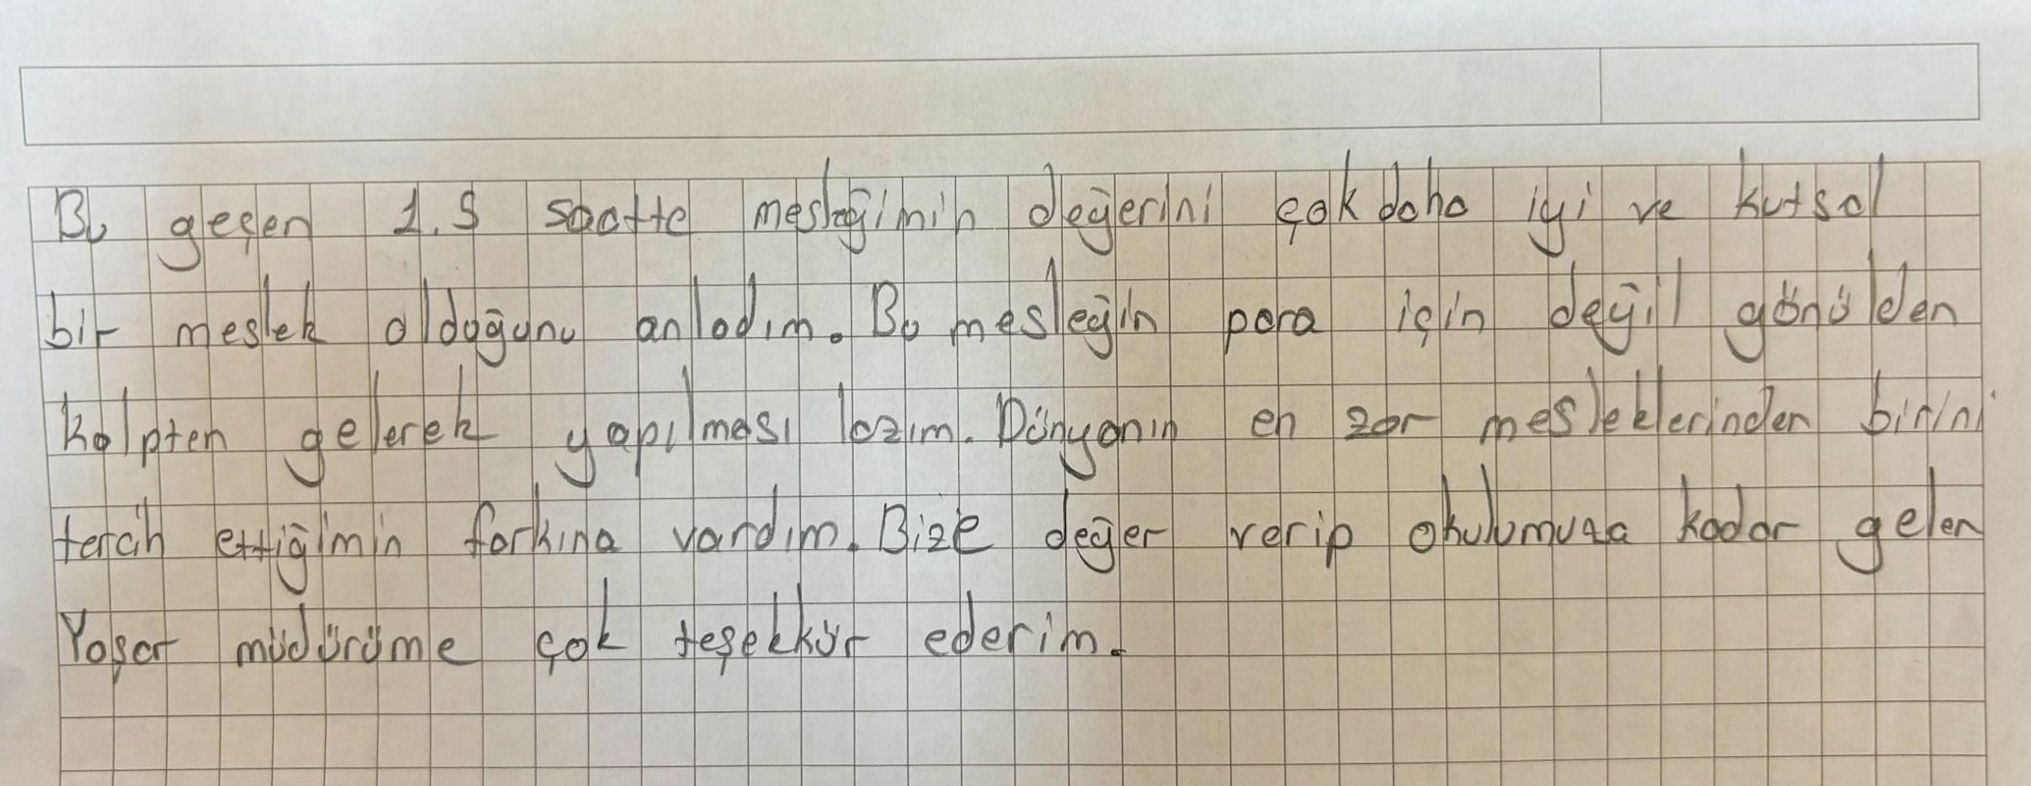 Bu geçen 1.5 saatte mesleğimin değerini çok daha iyi ve kutsal
bir meslek olduğunu anladım. Bu mesleğin para için değil gönülden
kalpten gelerek yapılması lazım. Dünyanın en zor mesleklerinden birini
tercih ettiğimin farkına vardım. Bize değer verip okulumuza kadar gelen
Yaşar müdürüme çok teşekkür ederim.